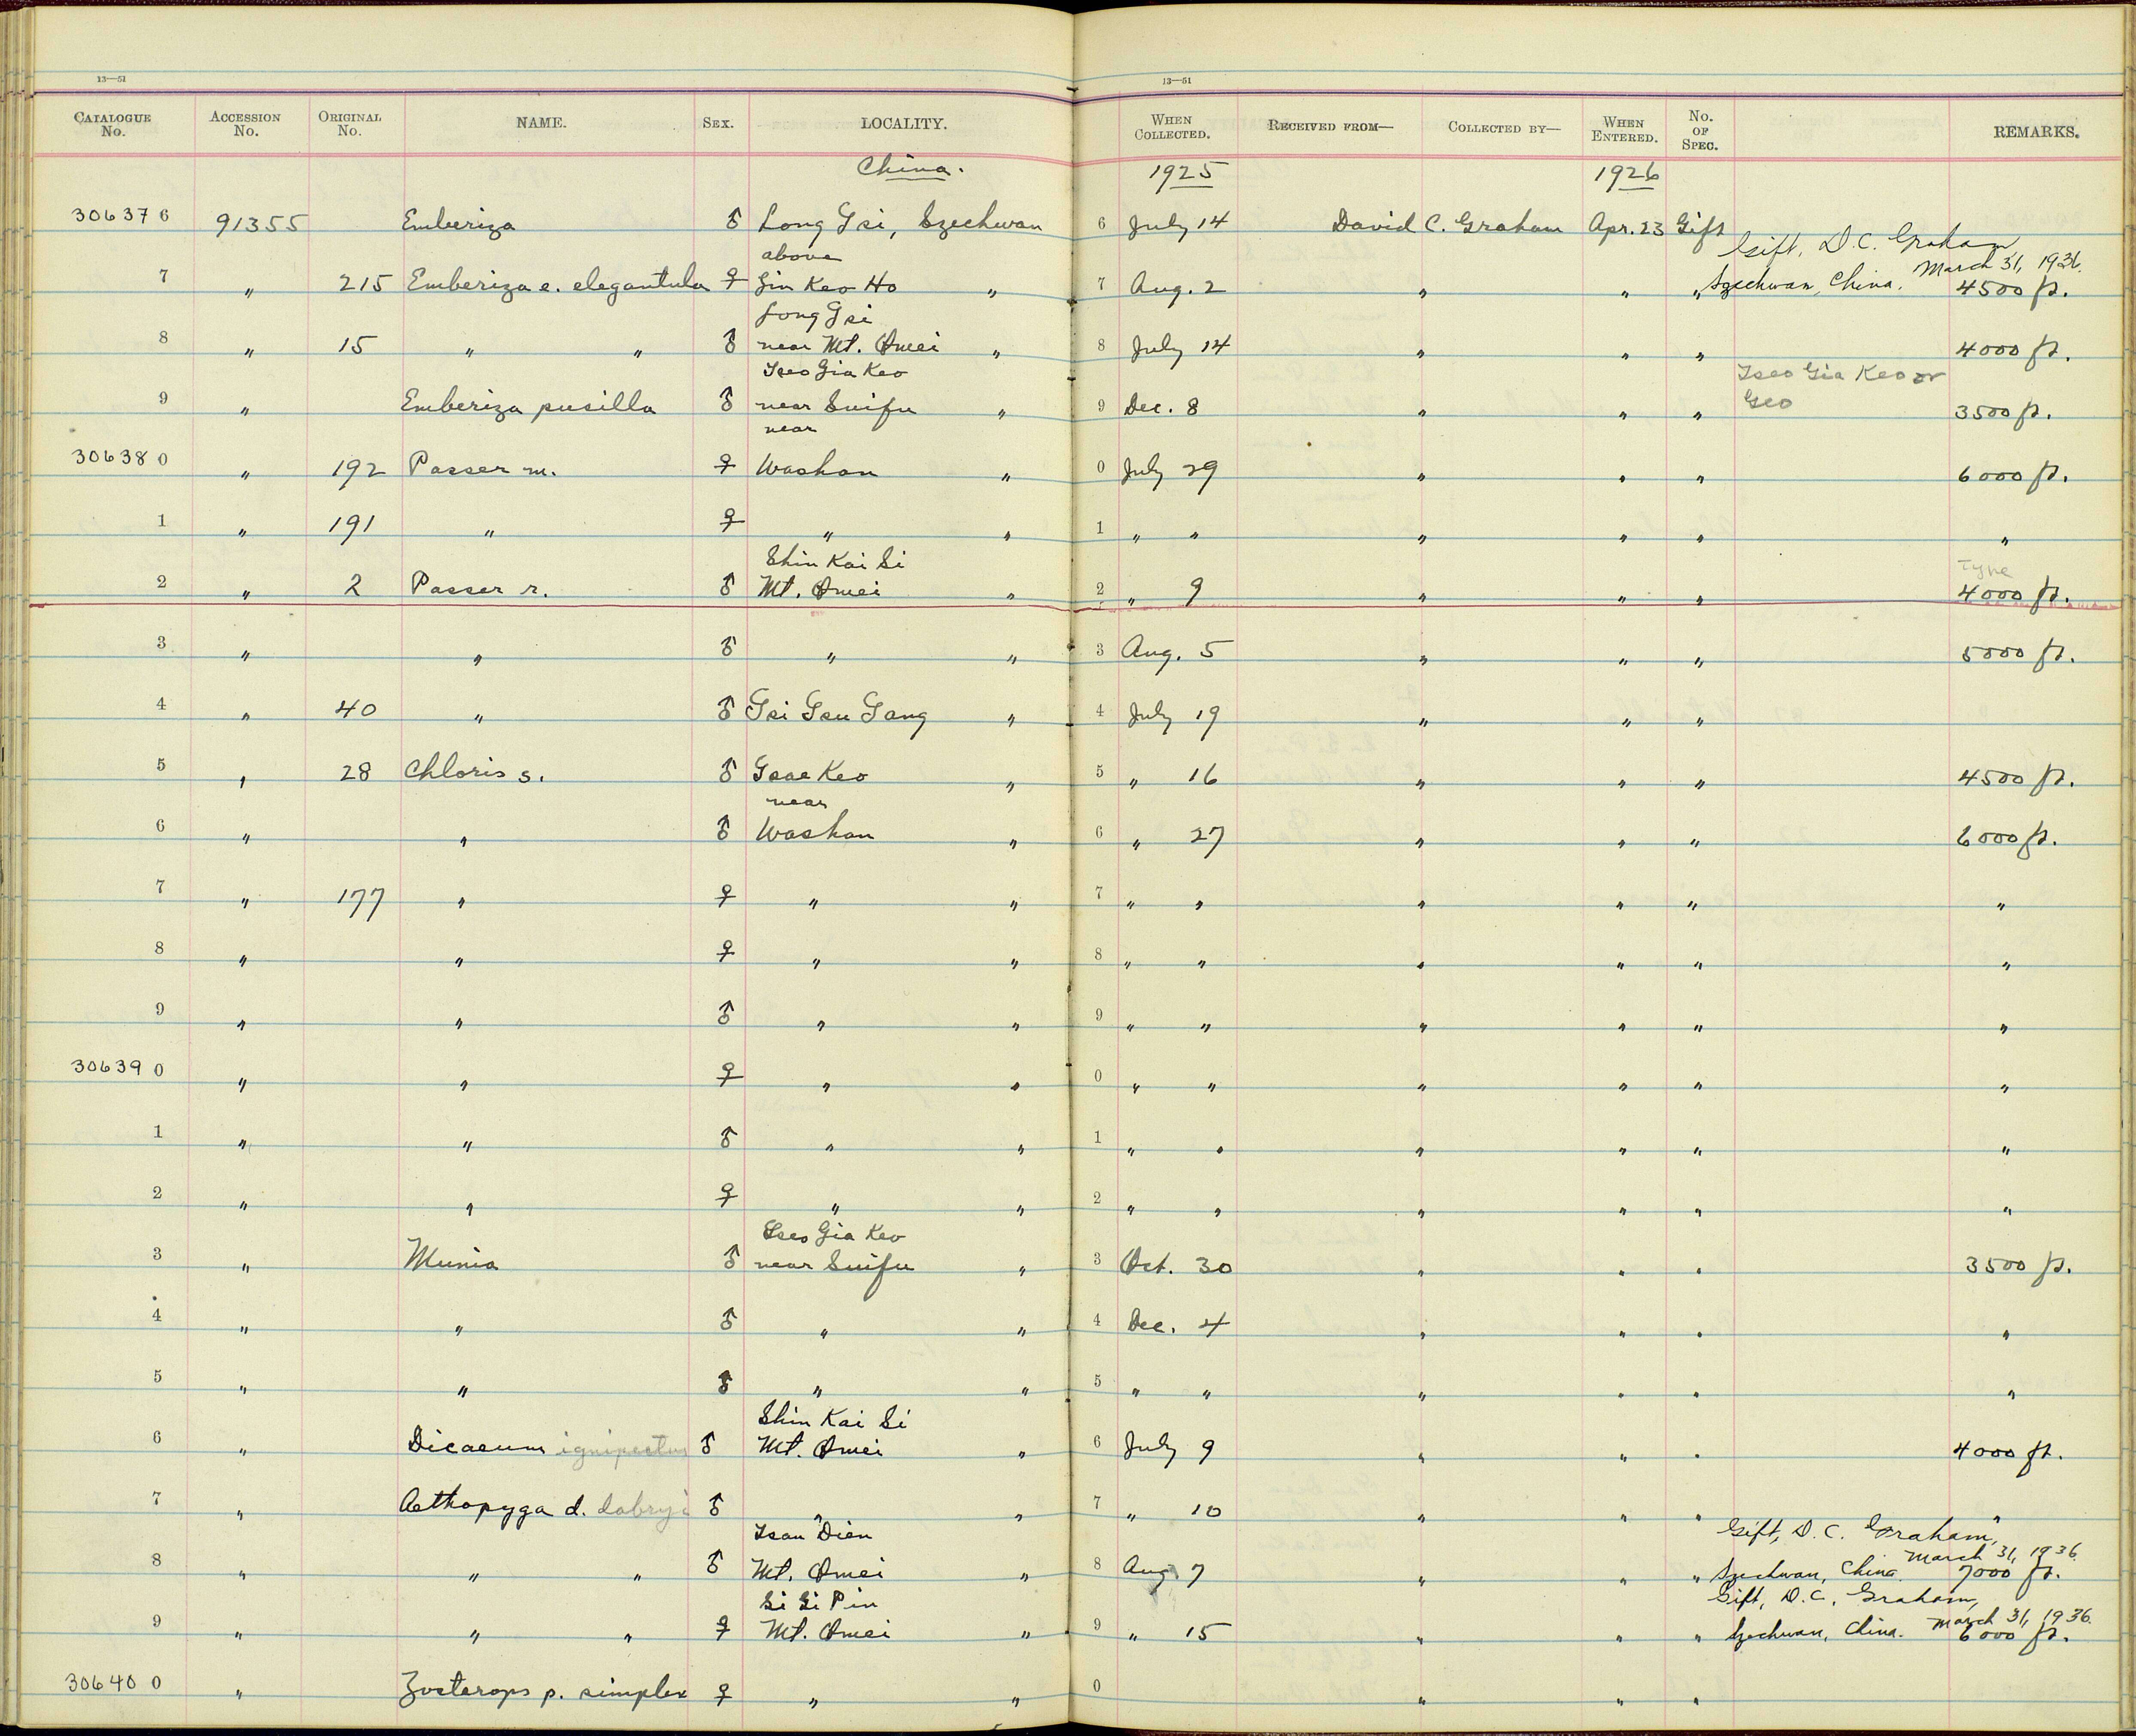 13—51 13—51
CATALOGUE No. ACCESSION No. ORIGINAL No. NAME. SEX. LOCALITY. WHEN COLLECTED. RECEIVED FROM— COLLECTED BY— WHEN ENTERED. No. OF SPEC. REMARKS.
China. 1925 1926
306376 91355 Emberiza ♂ Long Gsi, Szechwan 6 July 14 David C. Graham Apr. 23 Gift
above Gift, D. C. Graham
7 " 215 Emberiza e. elegantula ♀ Gin Keo Ho " 7 Aug. 2 " " " Szechwan, China. March 31, 1936. 4500 ft.
Long Gsi
8 " 15 " " ♂ near Mt. Omei " 8 July 14 " " " 4000 ft.
Tseo Gia Keo Tseo Gia Keo or
9 " Emberiza pusilla ♂ near Suifu " 9 Dec. 8 " " " Geo 3500 ft.
near
306380 " 192 Passer m. ♀ Washan " 0 July 29 " " " 6000 ft.
1 " 191 " ♀ " " 1 " " " " " "
Shin Kai Si Type
2 " 2 Passer r. ♂ Mt. Omei " 2 " 9 " " " 4000 ft.
3 " " ♂ " " 3 Aug. 5 " " " 5000 ft.
4 " 40 " ♂ Gsi Gsu Gang " 4 July 19 " " "
5 " 28 Chloris s. ♂ Gsae Keo " 5 " 16 " " " 4500 ft.
near
6 " " ♂ Washan " 6 " 27 " " " 6000 ft.
7 " 177 " ♀ " " 7 " " " " " "
8 " " ♀ " " 8 " " " " " "
9 " " ♂ " " 9 " " " " " "
306390 " " ♀ " " 0 " " " " " "
1 " " ♂ " " 1 " " " " " "
2 " " ♀ " " 2 " " " " " "
Tseo Gia Keo
3 " Munia ♂ near Suifu " 3 Oct. 30 " " " 3500 ft.
4 " " ♂ " " 4 Dec. 4 " " " "
5 " " ♂ " " 5 " " " " " "
Shin Kai Si
6 " Dicaeum ignipectus ♂ Mt. Omei " 6 July 9 " " " 4000 ft.
7 " Aethopyga d. dabryi ♂ " " 7 " 10 " " " "
Tsan Dien Gift, D. C. Graham,
8 " " " ♂ Mt. Omei " 8 Aug. 7 " " " Szechwan, China. March 31, 1936. 7000 ft.
Si Si Pin Gift, D. C. Graham,
9 " " " ♀ Mt. Omei " 9 " 15 " " " Szechwan, China. March 31, 1936. 6000 ft.
306400 " Zosterops p. simplex ♀ " " 0 " " "